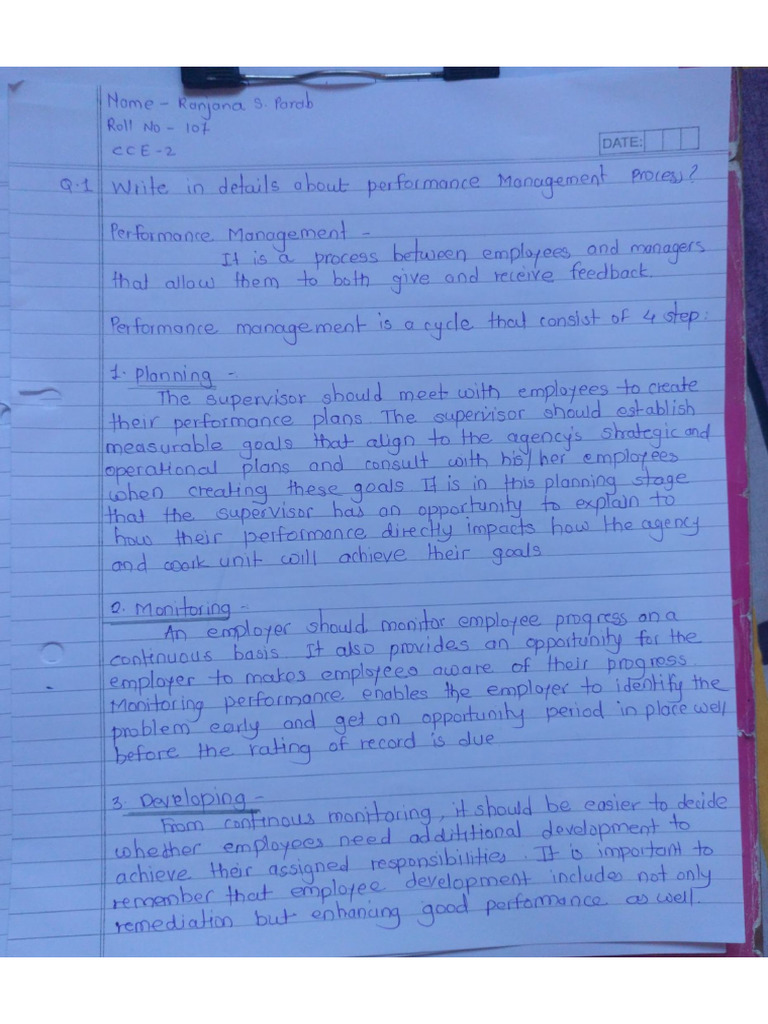 Name - Ranjana S. Parab
Roll No - 107
CCE-2
DATE:
Q.1 Write in details about performance Management Process?
Performance Management -
It is a process between employees and managers
that allow them to both give and receive feedback.
Performance management is a cycle that consist of 4 step:
1. Planning -
The supervisor should meet with employees to create
their performance plans The supervisor should establish
measurable goals that align to the agency's strategic and
operational plans and consult with his/her employees
when creating these goals It is in this planning stage
that the supervisor has an opportunity to explain to
how their performance directly impacts how the agency
and work unit will achieve their goals
2. Monitoring -
An employer should monitor employee progress on a
continuous basis. It also provides an opportunity for the
employer to makes employees aware of their progress
Monitoring performance enables the employer to identify the
problem early and get an opportunity period in place well
before the rating of record is due
3. Developing -
From continous monitoring, it should be easier to decide
whether employees need addititional development to
achieve their assigned responsibilities. It is important to
remember that employee development includes not only
remediation but enhancing good performance as well.